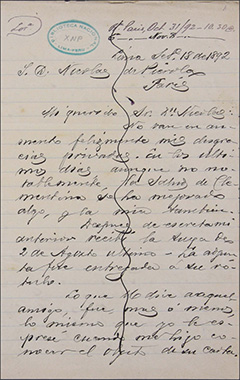 BIBLIOTECA NACIONAL
XNP
LIMA-PERU
Paris, Oct. 31/92
Lima Set. 18 de 1892
S. D. Nicolas de Pierola
Paris
Mi querido Sr. Dn. Nicolas:
No van en au-
mento felizmente mis desgra-
cias privadas. En los ulti-
mos dias, aunque no no-
tablemente, la salud de Cle-
mentina se ha mejorado
algo, y la mia tambien.
Despues de escrita mi
anterior recibí la suya de
2 de Agosto ultimo. La adjun-
ta fue entregada a su ro-
tulo.
Lo que me dice aquel
amigo, fue mas o menos
lo mismo que yo le es-
presé cuando me hizo co-
nocer el objeto de su carta